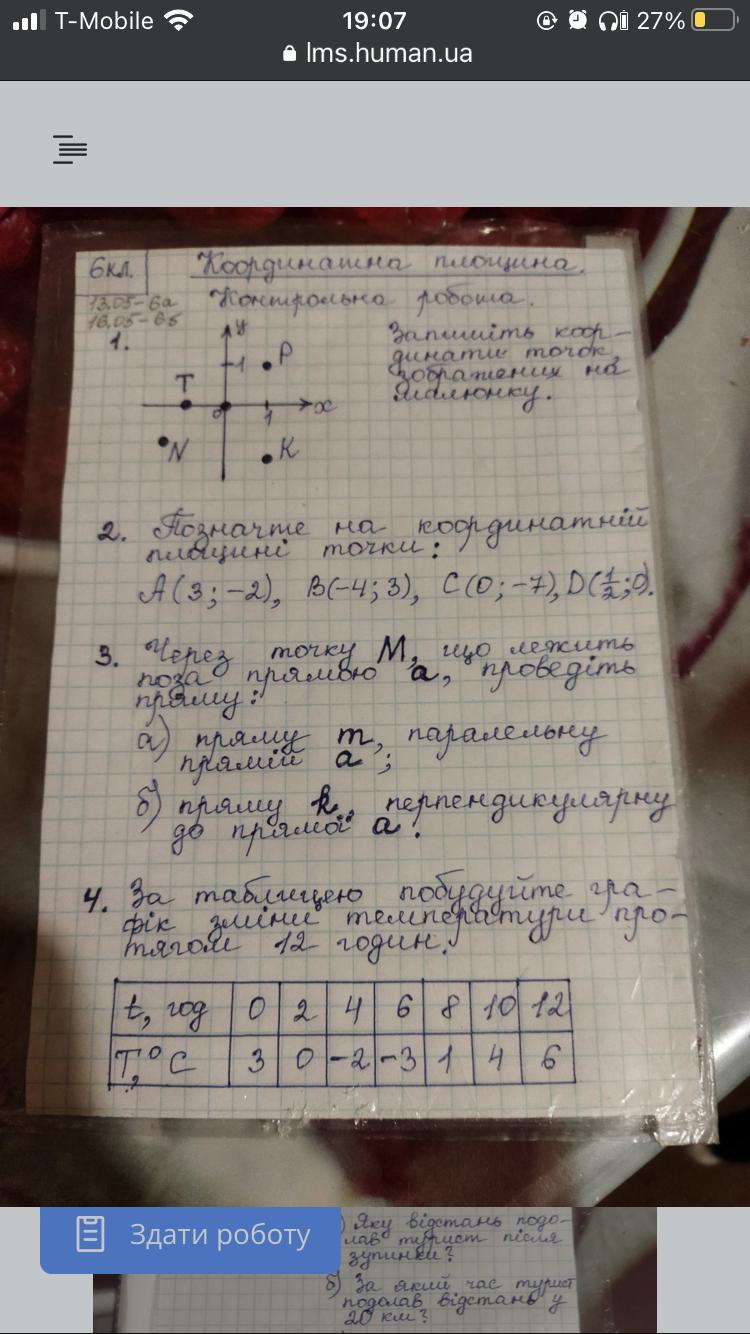 T-Mobile 19:07 27%
lms.human.ua
6кл. Координатна площина.
13.05-6а Контрольна робота.
16.05-6б
1. y Запишіть коор-
P динати точок,
1 зображених на
T малюнку.
0 1 x
N K
2. Позначте на координатній
площині точки:
A(3; -2), B(-4; 3), C(0; -7), D(1/2; 0).
3. Через точку M, що лежить
поза прямою a, проведіть
пряму:
а) пряму m, паралельну
прямій a;
б) пряму k, перпендикулярну
до прямої a.
4. За таблицею побудуйте гра-
фік зміни температури про-
тягом 12 годин.
t, год 0 2 4 6 8 10 12
T, °C 3 0 -2 -3 1 4 6
Здати роботу
) Яку відстань подо-
лав турист після
зупинки?
б) За який час турист
подолав відстань у
20 км?